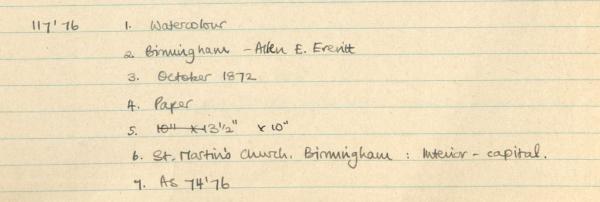 117'76 1. Watercolour
2. Birmingham - Allen E. Everitt
3. October 1872
4. Paper
5. 10" x 13½" x 10"
6. St. Martin's Church, Birmingham : Interior - capital.
7. As 74'76